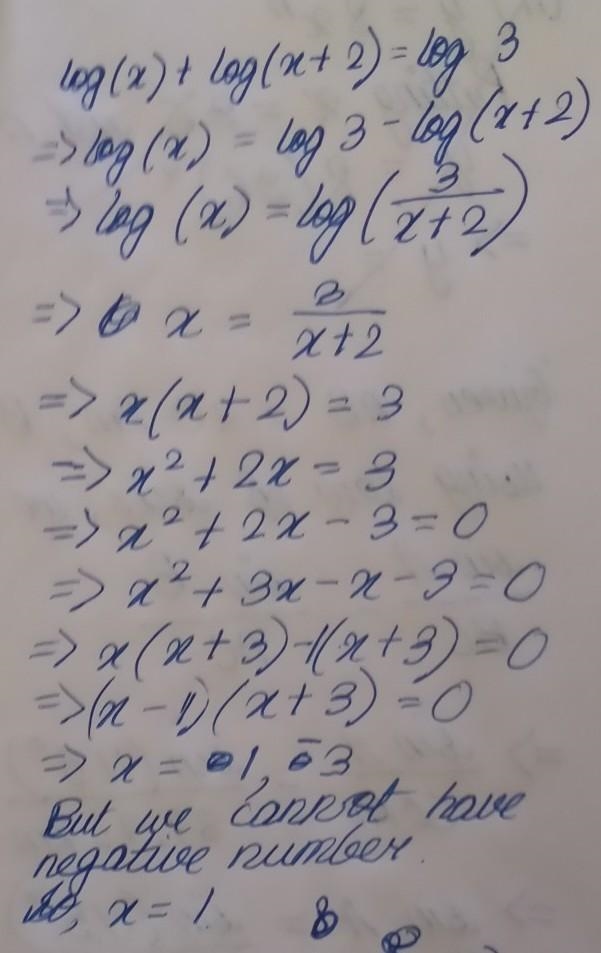 log(x) + log(x+2) = log 3
=> log(x) = log 3 - log(x+2)
=> log (x) = log(3/(x+2))
=> x = 3/(x+2)
=> x(x+2) = 3
=> x² + 2x = 3
=> x² + 2x - 3 = 0
=> x² + 3x - x - 3 = 0
=> x(x+3) -1(x+3) = 0
=> (x-1)(x+3) = 0
=> x = 1, -3
But we cannot have
negative number.
So, x = 1.